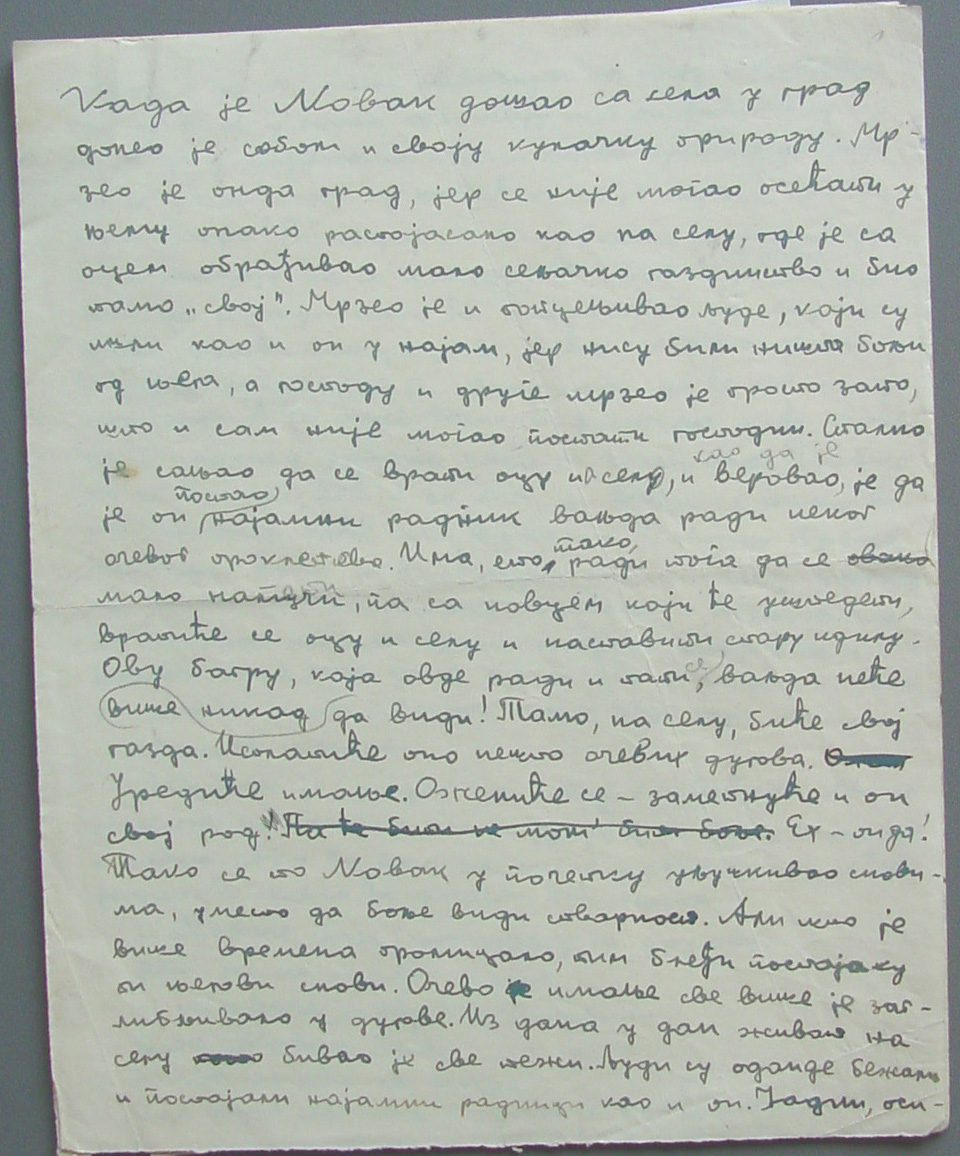 Када је Новак дошао са села у град
донео је собом и своју кулачку природу. Мр-
зео је онда град, јер се није могао осећати у
њему онако распојасано као на селу, где је са
оцем обрађивао мало сељачко газдинство и био
тамо „свој". Мрзео је и потцењивао људе, који су
ишли као и он у најам, јер нису били ништа бољи
од њега, а господу и друге мрзео је просто зато,
што и сам није могао постати господин. Стално
је сањао да се врати оцу и селу, и као да је веровао, је да
је он постао најамни радник ваљда ради неког
очевог проклетства. Има, ето, тако ради тога да се овако
мало напати, па са новцем који ће уштедети,
вратиће се оцу и селу и наставити стару идилу.
Ову багру, која овде ради и пати се, ваљда неће
више никад да види! Тамо, на селу, биће свој
газда. Исплатиће оно нешто очевих дугова.
Уредиће имање. Ожениће се – заметнуће и он
свој род! Па ће бити не мож' бит боље. Ех – онда!
Тако се то Новак у почетку уљуљкивао снови-
ма, уместо да боље види стварност. Али што је
више времена промицало, тим блеђи постајаху
ти његови снови. Очево је имање све више је заг-
либљивало у дугове. Из дана у дан живот на
селу бивао је све тежи. Људи су оданде бежали
и постајали најамни радници као и он. Јадни, оси-